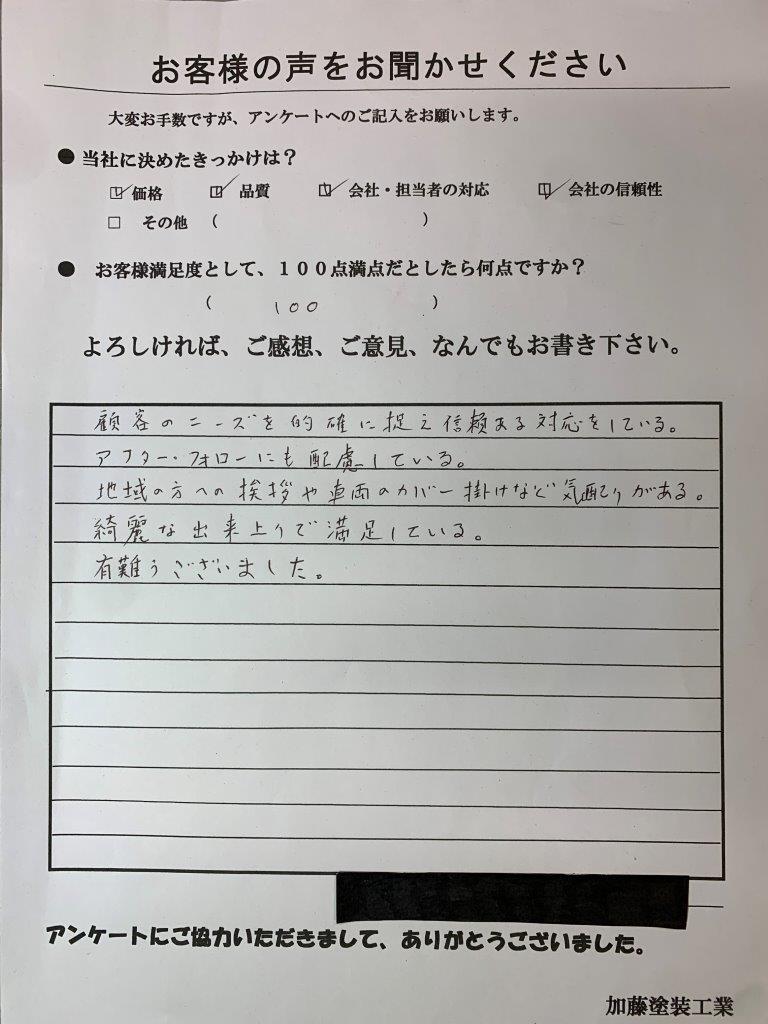 お客様の声をお聞かせください
大変お手数ですが、アンケートへのご記入をお願いします。
● 当社に決めたきっかけは？
☑価格 ☑品質 ☑会社・担当者の対応 ☑会社の信頼性
□ その他 （ ）
● お客様満足度として、１００点満点だとしたら何点ですか？
（ 100 ）
よろしければ、ご感想、ご意見、なんでもお書き下さい。
顧客のニーズを的確に捉え信頼ある対応をしている。
アフター・フォローにも配慮している。
地域の方への挨拶や車両のカバー掛けなど気配りがある。
綺麗な出来上りで満足している。
有難うございました。
アンケートにご協力いただきまして、ありがとうございました。
加藤塗装工業